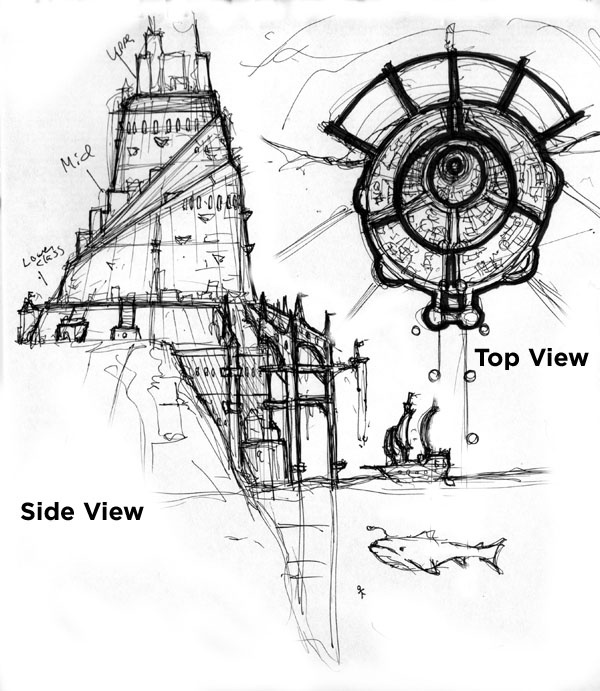 Upper
Mid
Lower
Class
Top View
Side View